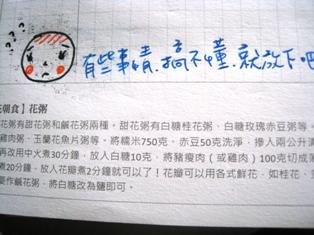 ???
有些事情.搞不懂.就放下吧
朝食】花粥
花粥有甜花粥和鹹花粥兩種。甜花粥有白糖桂花粥、白糖玫瑰赤豆粥等。
豬肉粥、玉蘭花魚片粥等。將糯米750克，赤豆50克洗淨，摻入兩公升清
再改用中火煮30分鐘，放入白糖10克，將豬瘦肉（或雞肉）100克切成薄
煮20分鐘，放入花瓣煮2分鐘就可以了！花瓣可以用各式鮮花，如桂花、
要作鹹花粥，將白糖改為鹽即可。